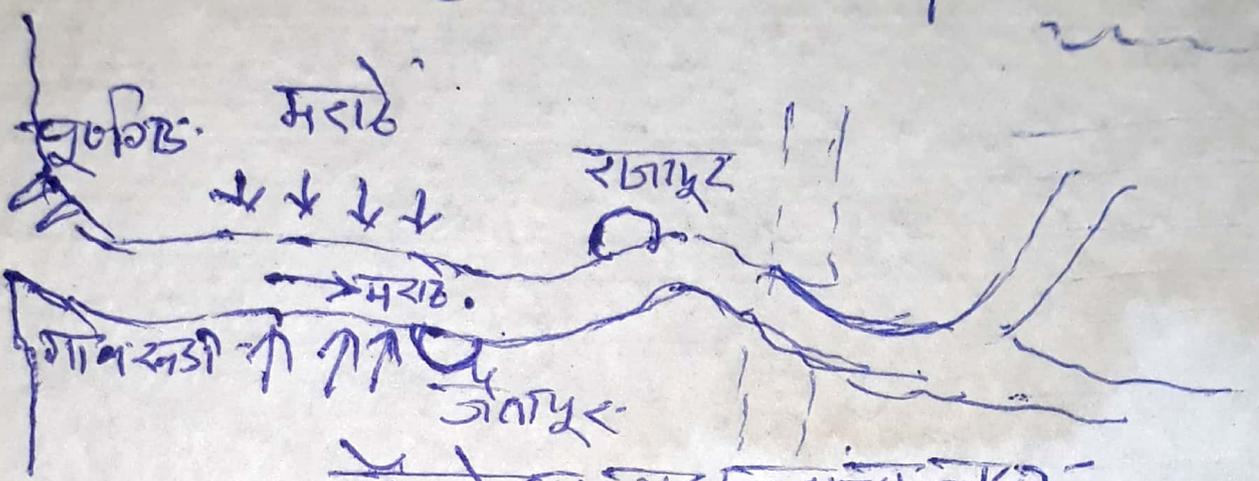 पूर्णगड. मराठे
राजापूर
→ मराठे.
जैतापूर